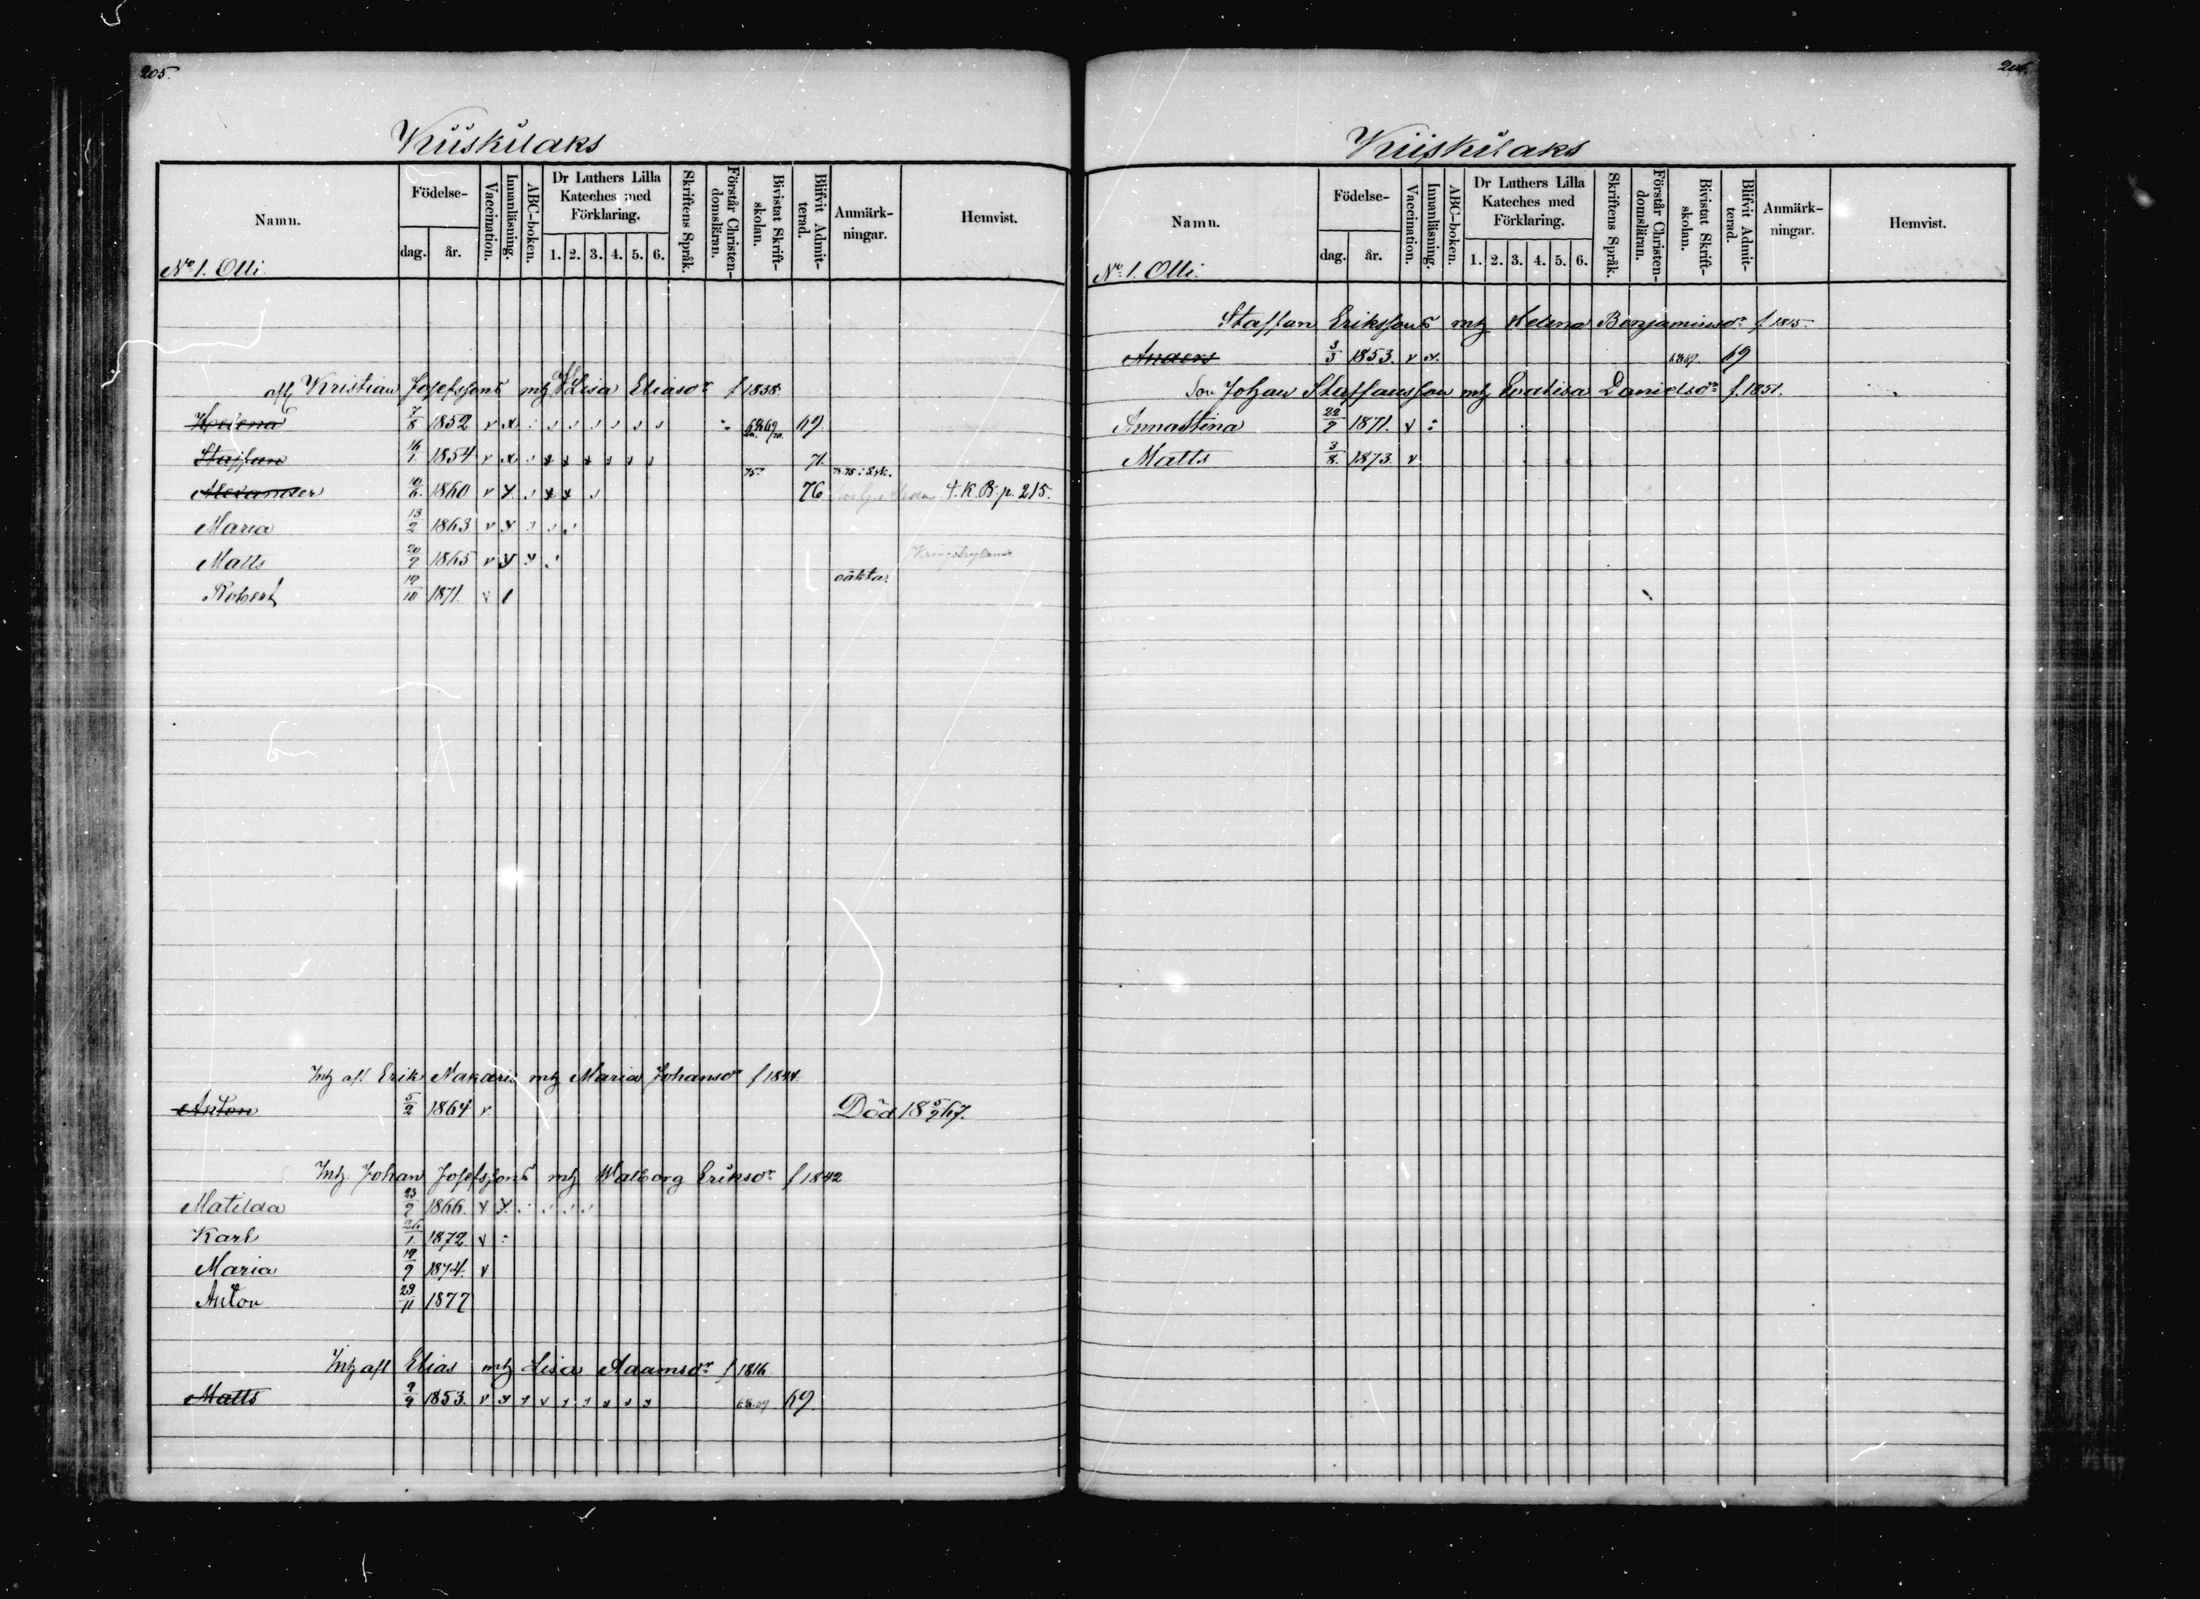 205.
Kuuskulaks
Namn.
Födelse-
dag. år.
Vaccination.
Innanläsning.
ABC-boken.
Dr Luthers Lilla
Kateches med
Förklaring.
1. 2. 3. 4. 5. 6.
Skriftens Språk.
Förstår Christen-
domsläran.
Bivistat Skrift-
skolan.
Blifvit Admit-
terad.
Anmärk-
ningar.
Hemvist.
No 1. Olli
Kristian Josefssons mtg Lisa Eliasdr f 1838.
Helena 7/8 1852 v x 69
Staffan 16/1 1854 v x 71.
Alexander 10/6 1860 v y 76 f. K. B. p. 215.
Maria 13/2 1863 v y
Matts 20/9 1865 v y y
oäkta.
Robert 19/10 1871. v 1
Intg afl Erik Nakaris mtg Maria Johansdr f 1844
Anton 5/2 1864 v Död 18 5/9 67.
Intg. Johan Josefssons mtg Walborg Eriksdr f 1842
Matilda 23/9 1866. v y
Karl 26/1 1872 v
Maria 19/9 1874. v
Anton 29/11 1877
Intg afl Elias mtg Lisa Adamsdr f 1816
Matts 9/9 1853. v 69.
206.
Kiiskulaks
Namn.
Födelse-
dag. år.
Vaccination.
Innanläsning.
ABC-boken.
Dr Luthers Lilla
Kateches med
Förklaring.
1. 2. 3. 4. 5. 6.
Skriftens Språk.
Förstår Christen-
domsläran.
Bivistat Skrift-
skolan.
Blifvit Admit-
terad.
Anmärk-
ningar.
Hemvist.
No 1. Olli.
Staffan Erikssons mtg Helena Benjaminsdr f 1815.
Anders 3/3 1853. v x. 69
Son Johan Staffansson mtg Evalisa Danielsdr f. 1851.
Annastina 22/9 1871. v
Matts 3/8 1873. v